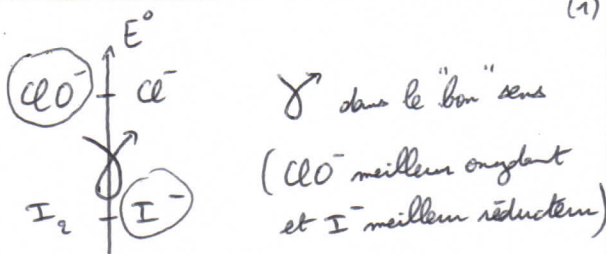 (1)
E°
ClO⁻ Cl⁻
γ dans le "bon" sens
(ClO⁻ meilleur oxydant
I₂ I⁻
et I⁻ meilleur réducteur)